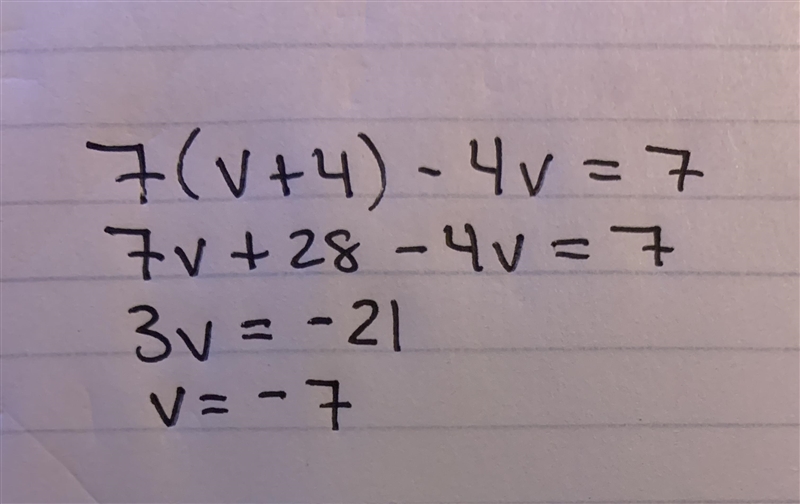 7(v+4) - 4v = 7
7v + 28 - 4v = 7
3v = -21
v = -7